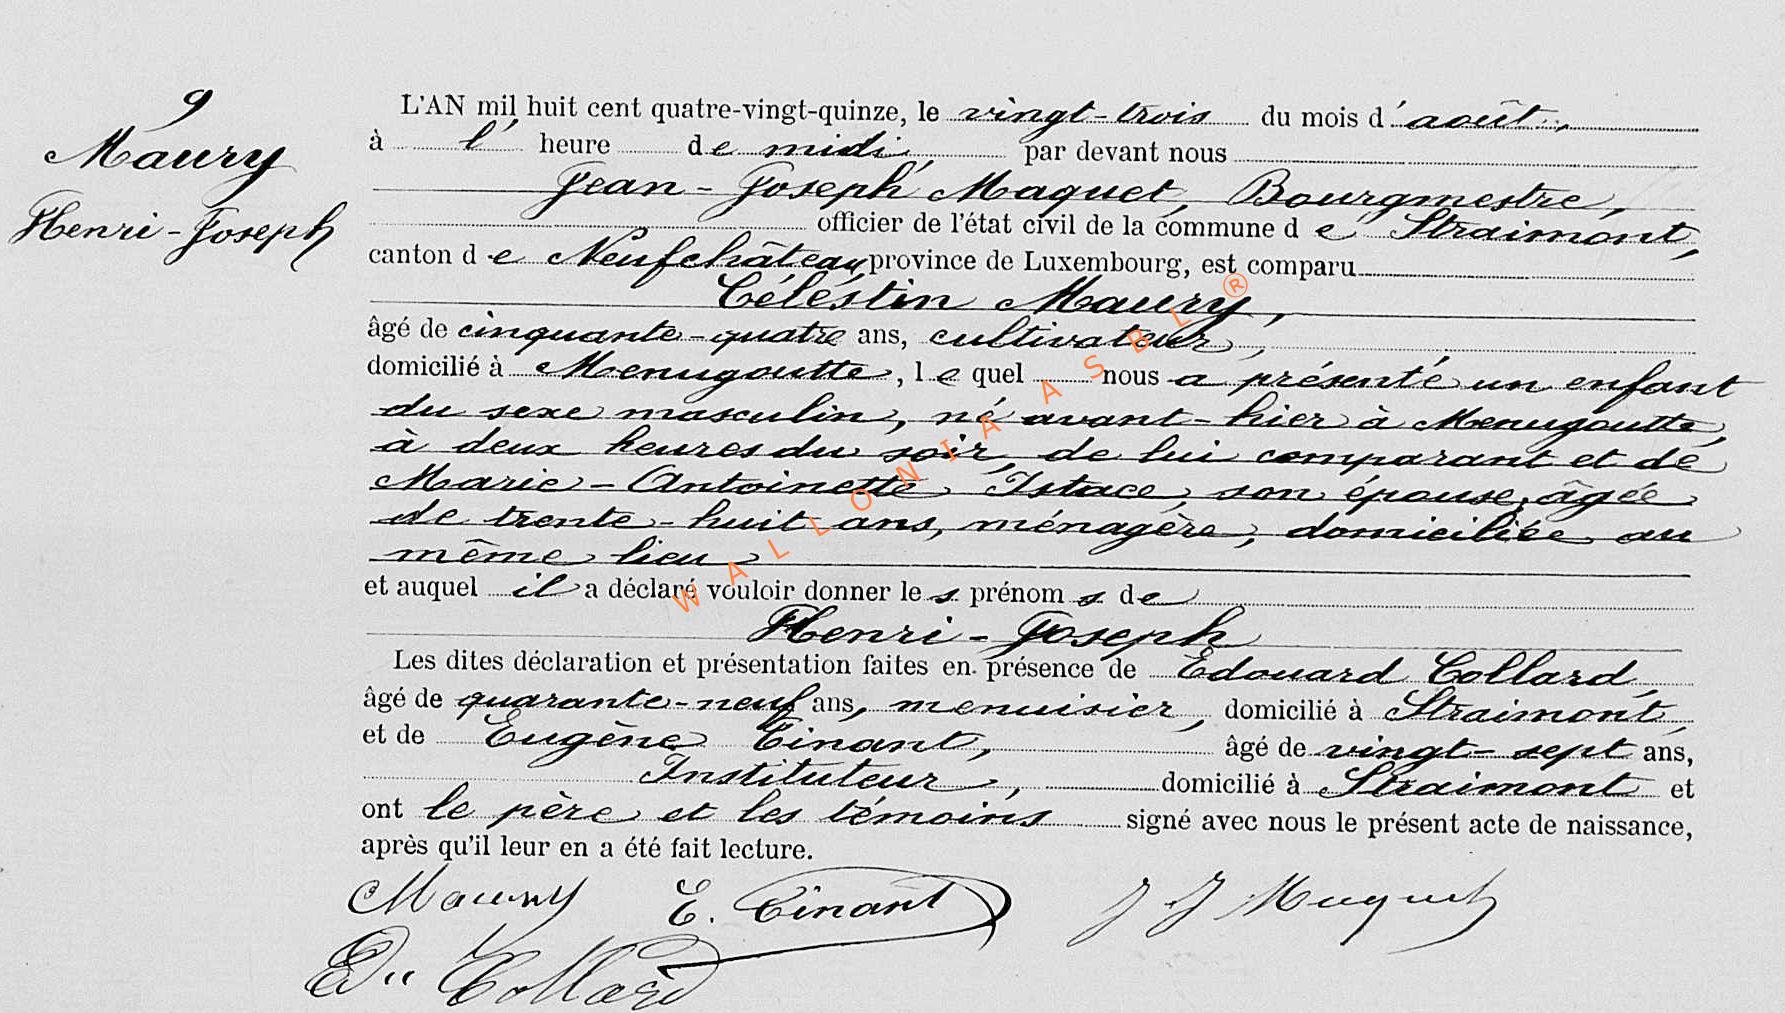 9
Maury
Henri-Joseph
L'AN mil huit cent quatre-vingt-quinze, le vingt-trois du mois d'août,
à l' heure de midi, par devant nous
Jean-Joseph Maquet, Bourgmestre,
officier de l'état civil de la commune de Straimont,
canton de Neufchâteau, province de Luxembourg, est comparu
Céléstin Maury,
âgé de cinquante-quatre ans, cultivateur,
domicilié à Menugoutte, lequel nous a présenté un enfant
du sexe masculin, né avant-hier à Menugoutte,
à deux heures du soir, de lui comparant et de
Marie-Antoinette Istace, son épouse, âgée
de trente-huit ans, ménagère, domiciliée au
même lieu
et auquel il a déclaré vouloir donner les prénoms de
Henri-Joseph
Les dites déclaration et présentation faites en présence de Edouard Collard,
âgé de quarante-neuf ans, menuisier, domicilié à Straimont,
et de Eugène Tinant, âgé de vingt-sept ans,
Instituteur, domicilié à Straimont et
ont le père et les témoins signé avec nous le présent acte de naissance,
après qu'il leur en a été fait lecture.
Maury E. Tinant J J Maquet
Ed. Collard
WALLONIA ASBL®